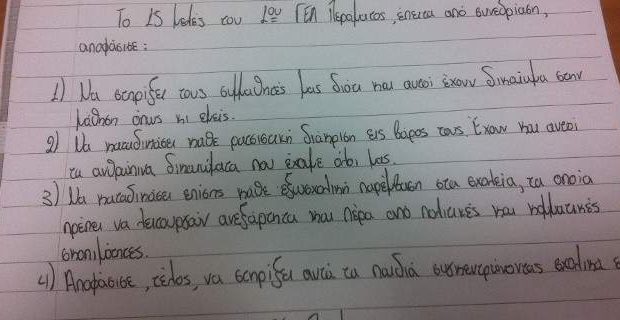 Το 15μελές του 1ου ΓΕΛ Περάματος, έπειτα από συνεδρίαση,
αποφάσισε:
1) Να στηρίξει τους συμμαθητές μας διότι και αυτοί έχουν δικαίωμα στην
μάθηση όπως κι εμείς.
2) Να καταδικάσει κάθε ρατσιστική διάκριση εις βάρος τους. Έχουν και αυτοί
τα ανθρώπινα δικαιώματα που έχουμε όλοι μας.
3) Να καταδικάσει επίσης κάθε εξωσχολική παρέμβαση στα σχολεία, τα οποία
πρέπει να λειτουργούν ανεξάρτητα και πέρα από πολιτικές και κομματικές
σκοπιμότητες.
4) Αποφάσισε, τέλος, να στηρίξει αυτά τα παιδιά συγκεντρώνοντας σχολικά